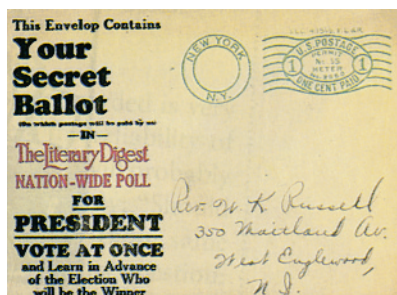 This Envelop Contains
Your
Secret
Ballot
(On which postage will be paid by us)
—IN—
The Literary Digest
NATION-WIDE POLL
FOR
PRESIDENT
VOTE AT ONCE
and Learn in Advance
of the Election Who
will be the Winner
NEW YORK
N.Y.
U.S. POSTAGE
PERMIT
METER
1
1
ONE CENT PAID
Rev. W. K. Russell
350 Maitland Av.
West Englewood,
N J.